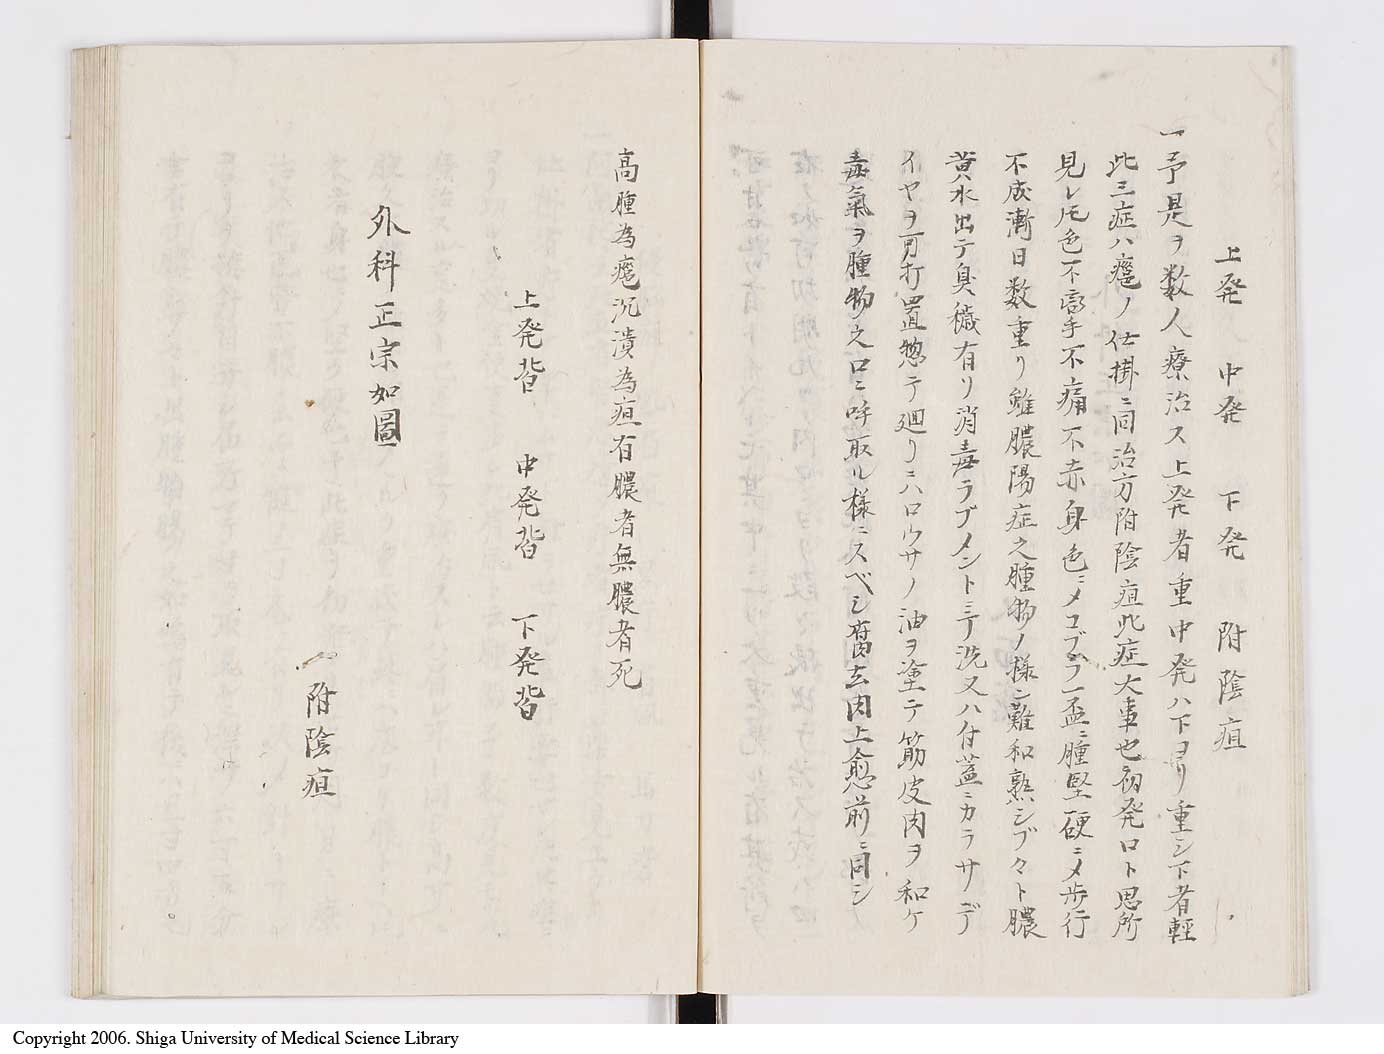 上発 中発 下発 附陰疽
一予是ヲ数人療治ス上発者重中発ハ下ヨリ重シ下者軽
此三症ハ癰ノ仕掛ニ同治方附陰疽此症大事也初発ロト思所
見レ𪜈色不高手不痛不赤身色ニメコブラ一盃ニ腫堅硬ニメ歩行
不成漸日数重リ雖膿陽症之腫物ノ様ニ難和熟シブ々ト膿
黄水出テ臭穢有リ消毒ラブメントニテ洗又ハ付蓋ニカラサデ
イヤヲ可打置惣テ廻リニハロウサノ油ヲ塗テ筋皮肉ヲ和ケ
毒氣ヲ腫物之口ニ呼取ル様ニスベシ腐去肉上愈前ニ同シ
高腫為癰沉潰為疽有膿者無膿者死
上発背 中発背 下発背
外科正宗如圖
附陰疽
Copyright 2006. Shiga University of Medical Science Library